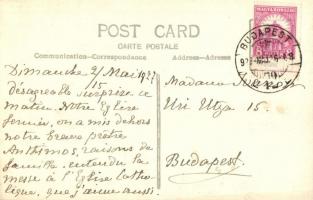 POST CARD
CARTE POSTALE
Communication—Correspondence
Address—Adresse
MAGYARORSZÁG
BUDAPEST
Dimanche 2/Mai 1927
15
désagréable surprise ce
matin. Notre Eglise
fermée, on a mis dehors
notre brave prêtre
Anthimos, raisons de
famille. entendu la
messe à l'Eglise Catho-
lique, que j'aime aussi.
Madame
Uri Utza 15.
Budapest